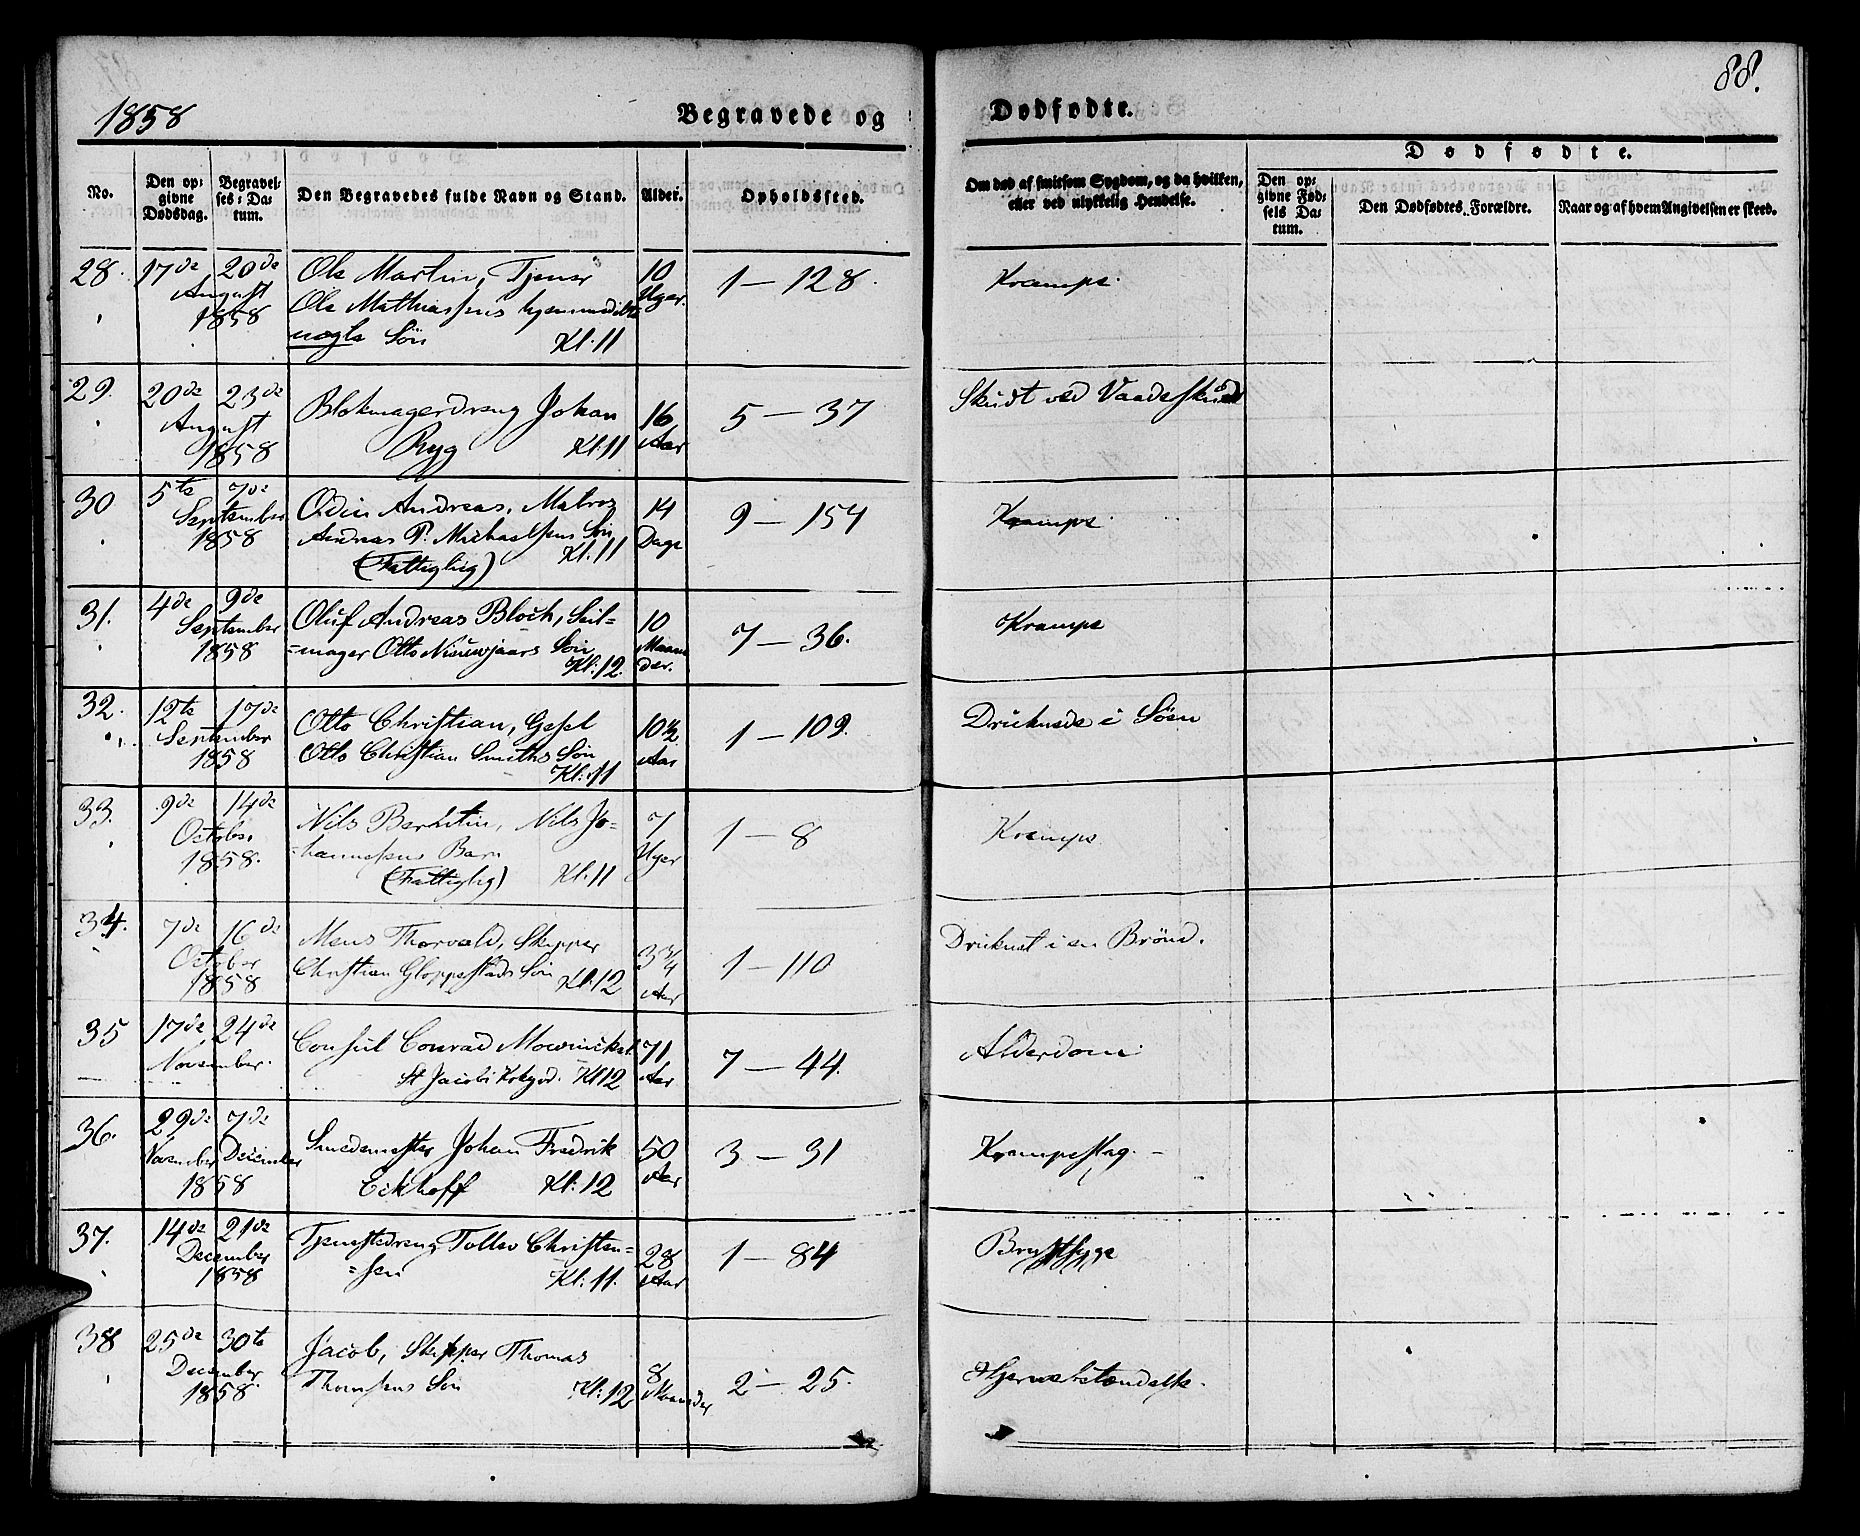 1858
Begravede og
Dødfødte.
88.
No.
Den opgivne Dødsdag.
Begravelses-Datum.
Den Begravedes fulde Navn og Stand.
Alder.
Opholdssted.
Om død af smitsom Sygdom, og da hvilken,
eller ved ulykkelig Hendelse.
Dødfødte.
Den opgivne Fødsels Datum.
Den Dødfødtes Forældre.
Naar og af hvem Angivelsen er skeed.
28. 17de 20de Ole Martin, Tjener 10 1 — 128. Krampe.
August Ole Mathiassens hjemmedøbte Uger.
1858 nægte Søn Kl. 11
29. 20de 23de Blokmagerdreng Johan 16 5 — 37 Skudt ved Vaadeskud
August Ryg Kl. 11 Aar
1858
30 5te 7de Odin Andreas, Matros 14 9 — 154 Krampe
September Andreas P. Michaelsens Søn Dage
1858 (Fattiglig) Kl. 11
31. 4de 9de Oluf Andreas Bloch, Seil= 10 7 — 36. Krampe
September =mager Otto Nieuwjaars Søn Maane
1858 Kl. 12. der.
32. 12te 17de Otto Christian, Gesel 10½ 1 — 109. Druknede i Søen
September Otto Christian Smiths Søn Aar
1858 Kl. 11
33. 9de 14de Nils Berntin, Nils Jo= 7 1 — 8 Krampe
October =hannessens Barn Uger
1858. (Fattiglig) Kl. 11
34. 7de 16de Mons Thorvald, Skipper 3¾ 1 — 110 Druknet i en Brønd.
October Christian Gloppestads Søn
1858 Kl. 12 Aar
35 17de 24de Consul Conrad Mowinckel 71 7 — 44. Alderdom
November. St Jacobi Kirkgrd. Kl 12 Aar
36. 29de 7de Smedemester Johan Fredrik 50 3 — 31 Krampeslag.
November December Eckhoff Kl. 12 Aar
1858
37. 14de 21de Tjenestedreng Tollev Christen= 28 1 — 84 Brystsyge
December =sen Kl. 11. Aar
1858
38 25de 30te Jacob, Skipper Thomas 8 2 — 25. Hjernebetændelse.
December Thomsens Søn Kl. 12 Maander
1858